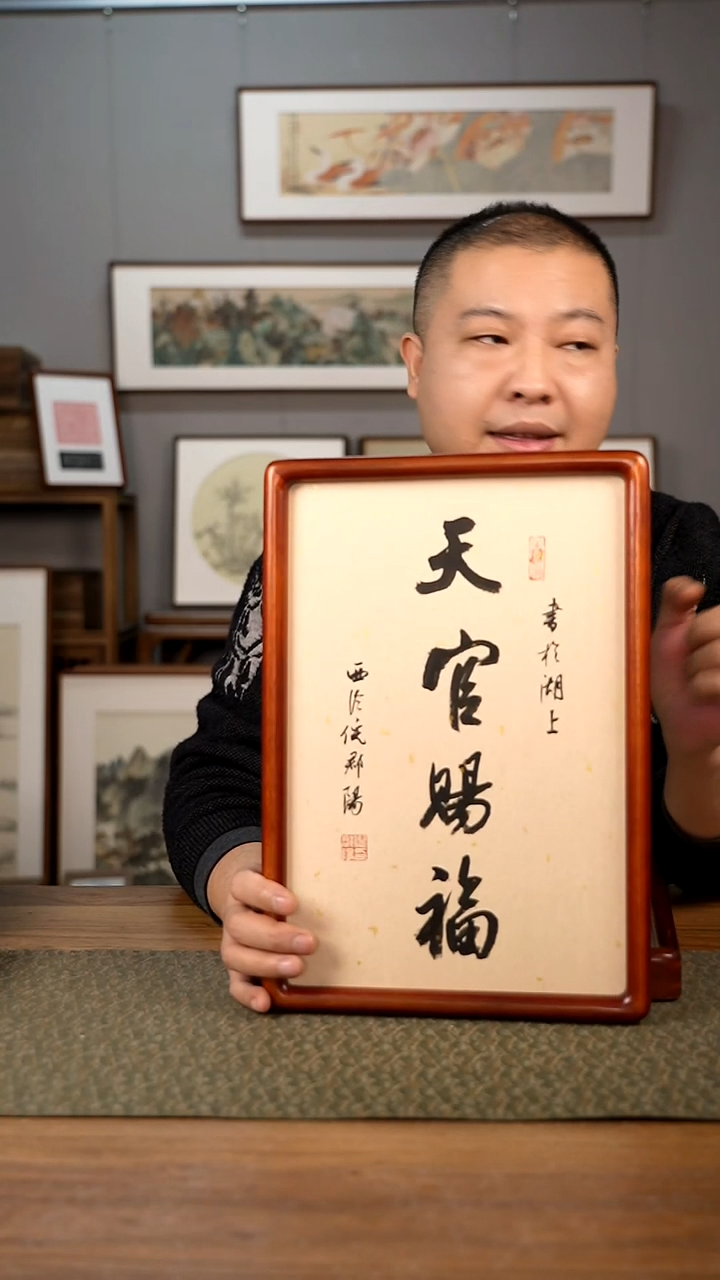 天官賜福
書於湖上
西泠倪郡陽